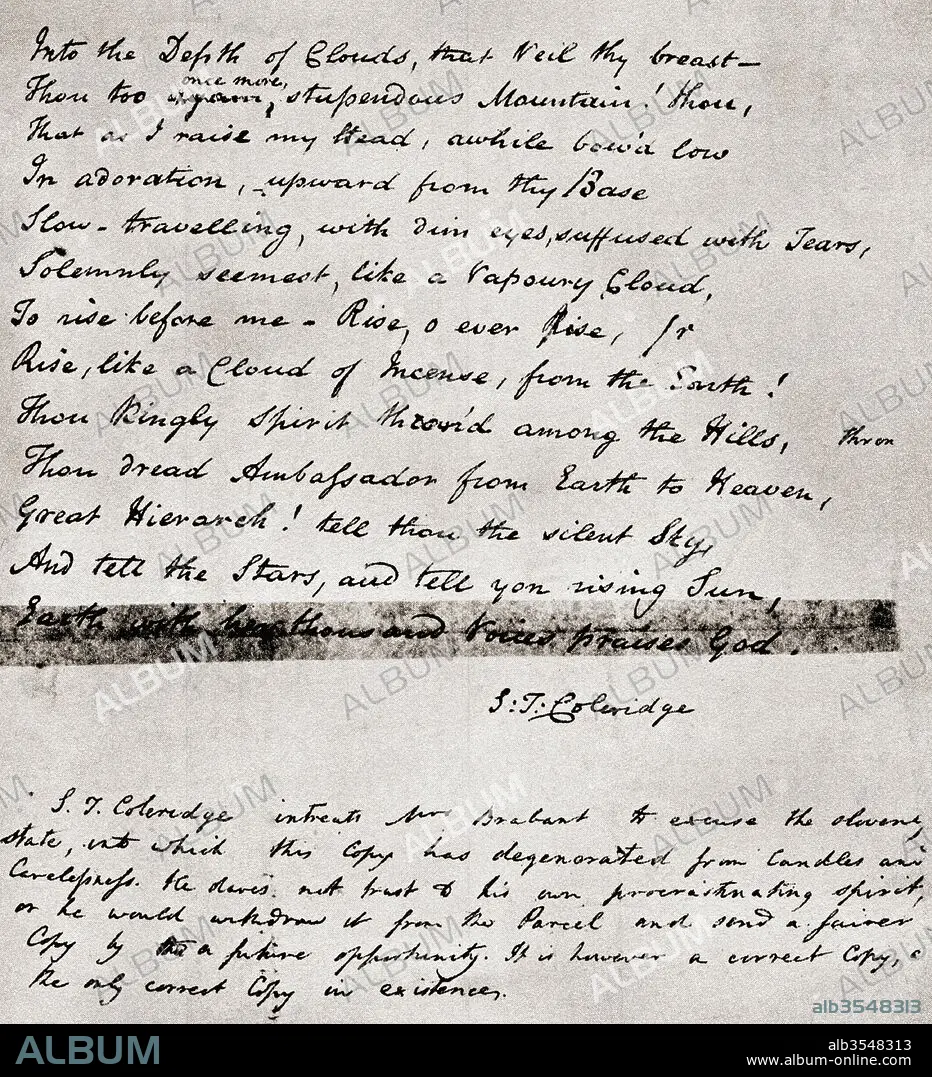 Into the Depth of Clouds, that Veil thy breast—
once more,
Thou too again, stupendous Mountain! thou,
That as I raise my Head, awhile bow'd low
In adoration, upward from thy Base
Slow-travelling, with dim eyes, suffused with Tears,
Solemnly seemest, like a Vapoury Cloud,
To rise before me - Rise, o ever Rise,
Rise, like a Cloud of Incense, from the Earth!
Thou Kingly Spirit thron'd among the Hills, thron
Thou dread Ambassador from Earth to Heaven,
Great Hierarch! tell thou the silent Sky,
And tell the Stars, and tell yon rising Sun,
Earth with her thousand Voices praises God.
S: T: Coleridge
S. T. Coleridge intreats Mr Brabant to excuse the slovenly
state, into which this Copy has degenerated from Candles and
Carelessness. He dares not trust to his own procrastinating spirit,
or he would withdraw it from the Parcel and send a fairer
Copy by a future opportunity. It is however a correct Copy, &
the only correct Copy in existence.
ALBUM
alb3548313
ALBUM
alb3548313
www.album-online.com